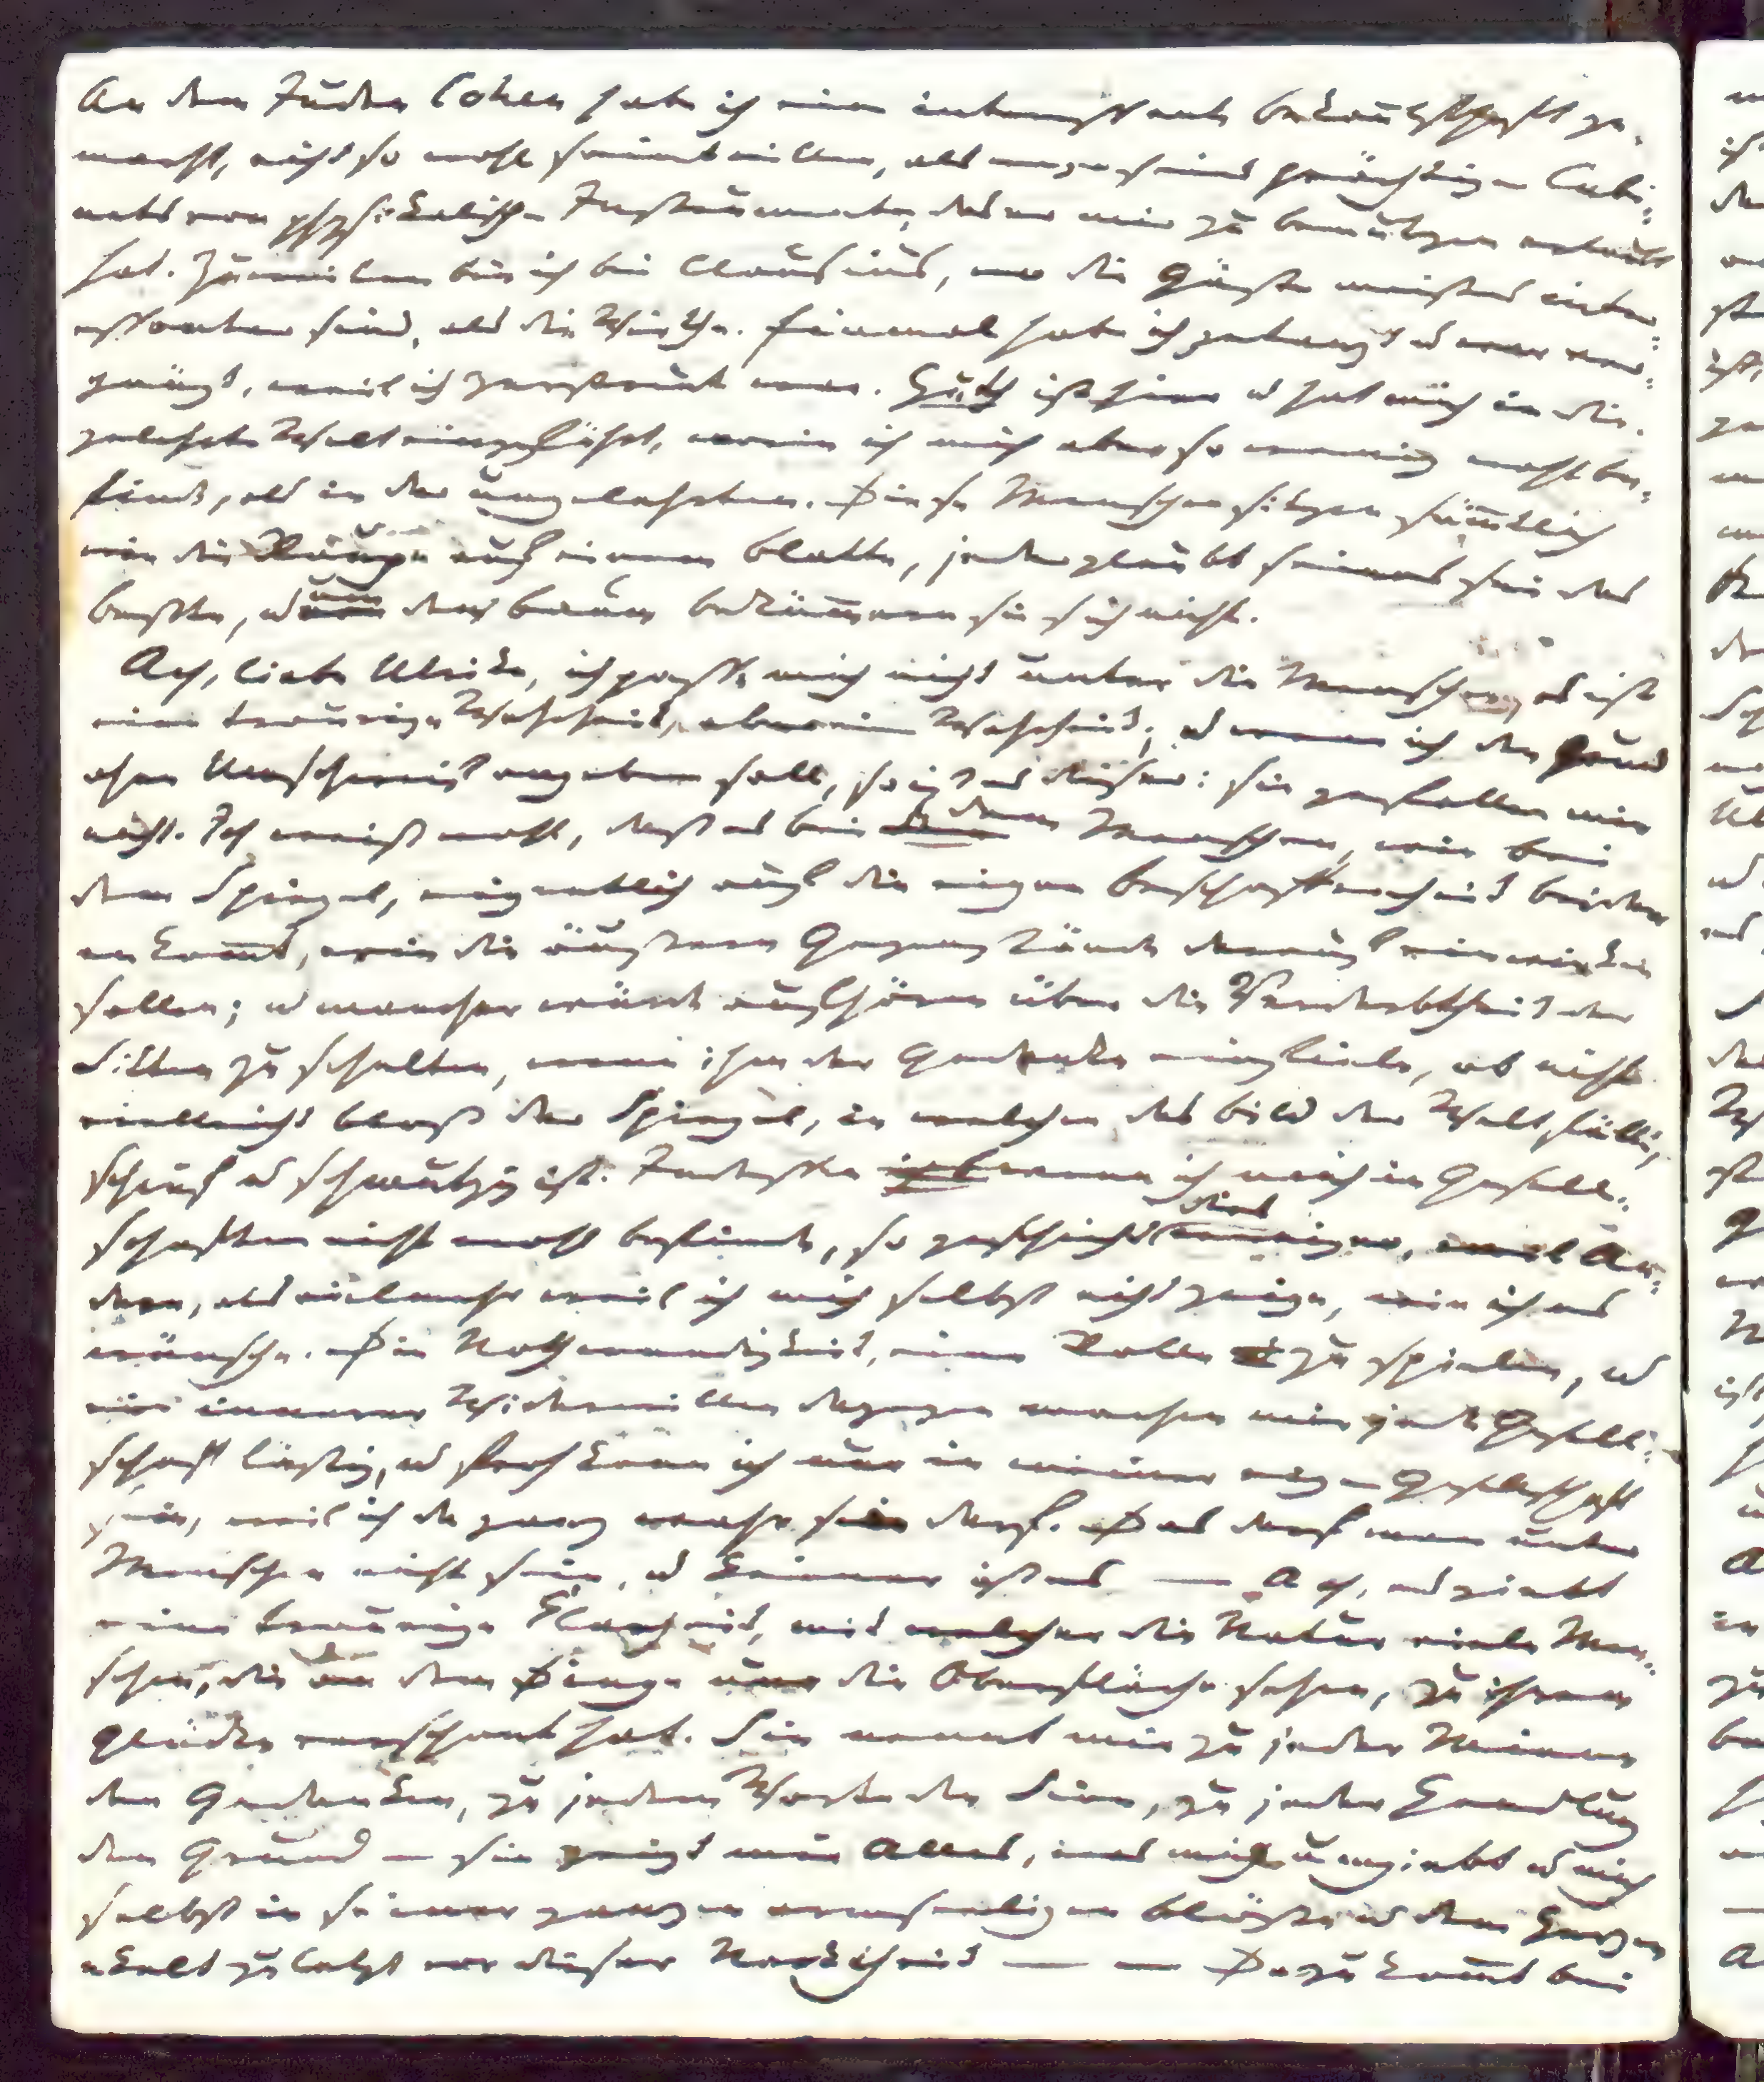 An dem Juden Cohen habe ich eine interessante Bekanntschaft ge-
macht, nicht so wohl seinetwillen, als wegen seines prächtigen Cabi-
nets von physikalischen Instrumenten, das er mir zu benutzen erlaubt
hat. Zuweilen bin ich bei Clausius, wo die Gäste meistens inter-
essanter sind, als die Wirthe. Einmal habe ich getanzt u war ver-
gnügt, weil ich zerstreut war. Huth ist hier u hat mich in die
gelehrte Welt eingeführt, worin ich mich aber so wenig wohl be-
finde, als in der ungelehrten. Diese Menschen sitzen sämtlich
wie die Raupe auf einem Blatte, jeder glaubt seines sei das
beste, u um den Baum bekümmern sie sich nicht.
Ach, liebe Ulrike, ich passe mich nicht unter die Menschen, es ist
eine traurige Wahrheit, aber eine Wahrheit; u wenn ich den Grund
ohne Umschweif angeben soll, so ist es dieser: sie gefallen mir
nicht. Ich weiß wohl, daß es bei dem Menschen, wie bei
dem Spiegel, eigentlich auf die eigne Beschaffenheit beider
ankommt, wie die äußern Gegenstände darauf einwirken
sollen; u mancher würde aufhören über die Verderbtheit der
Sitten zu schelten, wenn ihm der Gedanke einfiele, ob nicht
vielleicht bloß der Spiegel, in welchen das Bild der Welt fällt,
schief u schmutzig ist. Indessen wenn ich mich in Gesell-
schaften nicht wohl befinde, so geschieht dies weniger, weil An-
dere, als vielmehr weil ich mich selbst nicht zeige, wie ich es
wünsche. Die Nothwendigkeit, eine Rolle zu spielen, u
ein innerer Widerwillen dagegen machen mir jede Gesell-
schaft lästig, u froh kann ich nur in meiner eignen Gesellschaft
sein, weil ich da ganz wahr sein darf. Das darf man unter
Menschen nicht sein, u keiner ist es — Ach, es giebt
eine traurige Klarheit, mit welcher die Natur viele Men-
schen, die an dem Dinge nur die Oberfläche sehen, zu ihrem
Glücke verschont hat. Sie nennt mir zu jeder Miene
den Gedanken, zu jedem Worte den Sinn, zu jeder Handlung
den Grund — sie zeigt mir Alles, was mich umgiebt u mich
selbst in seiner ganzen armseeligen Blöße u dem Herzen
ekelt zuletzt vor dieser Nacktheit — — Dazu kommt bei